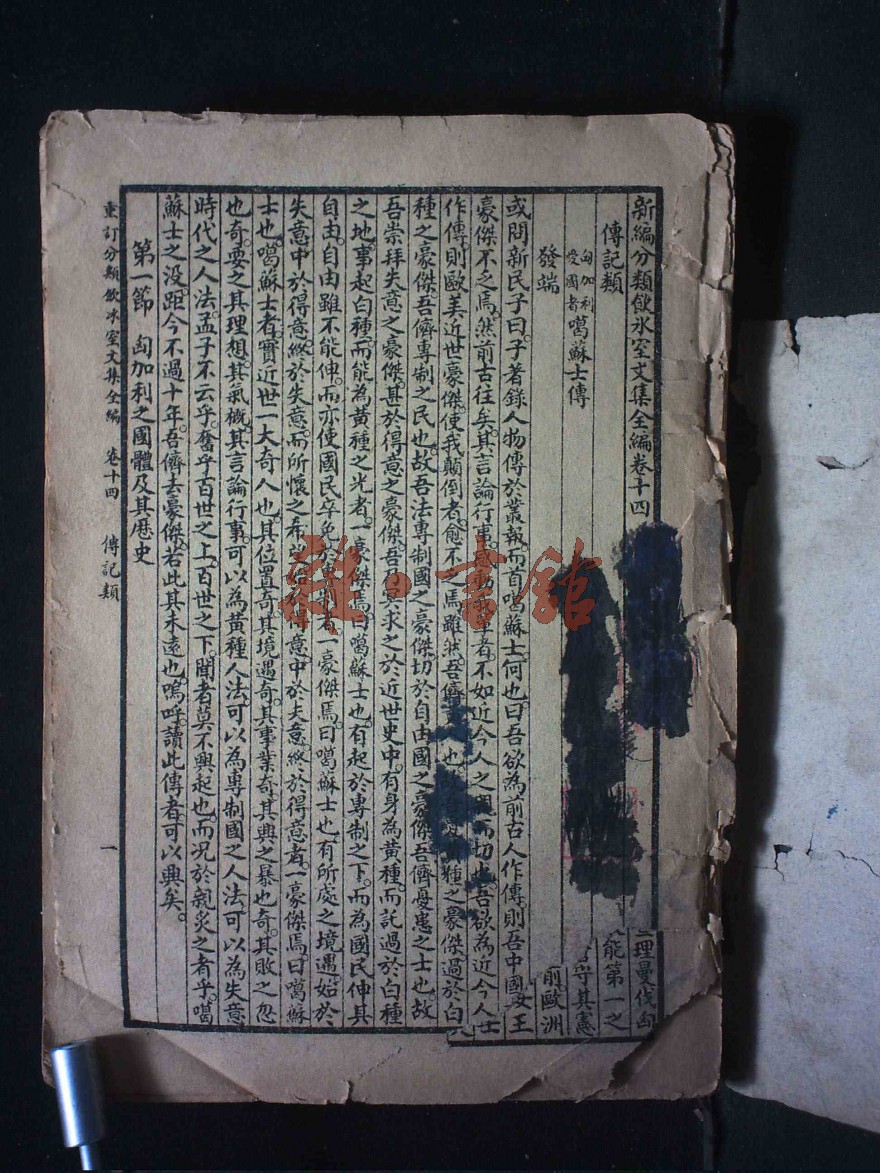 新編分類飲氷室文集全編卷十四
傳記類
匈加利
愛國者
噶蘇士傳
發端
或問新民子曰。子著錄人物傳於叢報。而首噶蘇士。何也。曰吾欲為前古人作傳。則吾中國
豪傑不乏焉。然前古往矣。其言論行事。感動者。不如近今人之親而切也。吾欲為近今人
作傳。則歐美近世豪傑。使我顛倒者。愈不乏焉。雖然。吾儕也。種之豪傑。過於白
種之豪傑。吾儕專制之民也。故吾法專制國之豪傑。切於自由國之豪傑。吾儕憂患之士也。故
吾崇拜失意之豪傑。甚於得意之豪傑。吾求之於近世史中。有身為黃種。而託過於白種
之地。事起白種。而能為黃種之光者。一豪傑焉。曰噶蘇士也。有起於專制之下。而為國民伸其
自由。自由雖不能伸。而亦使國民卒免於者。一豪傑焉。曰噶蘇士也。有所處之境遇。始於
失意。中於得意。終於失意。而所懷之希得意。中於失意。終於得意者。一豪傑焉。曰噶蘇
士也。噶蘇士者。實近世一大奇人也。其位置奇。其境遇奇。其事業奇。其興之暴也奇。其敗之忽
也奇。要之其理想。其氣概。其言論行事。可以為黃種人法。可以為專制國之人法。可以為失意
時代之人法。孟子不云乎。奮乎百世之上。百世之下。聞者莫不興起也。而況於親炙之者乎。噶
蘇士之没。距今不過十年。吾儕去豪傑。若此其未遠也。嗚呼。讀此傳者。可以興矣。
第一節　匈加利之國體及其歷史
重訂分類飲冰室文集全編　卷十四　傳記類
一
理曼伐匈
能第一之
守其憲
前歐洲
女王
雜·書館